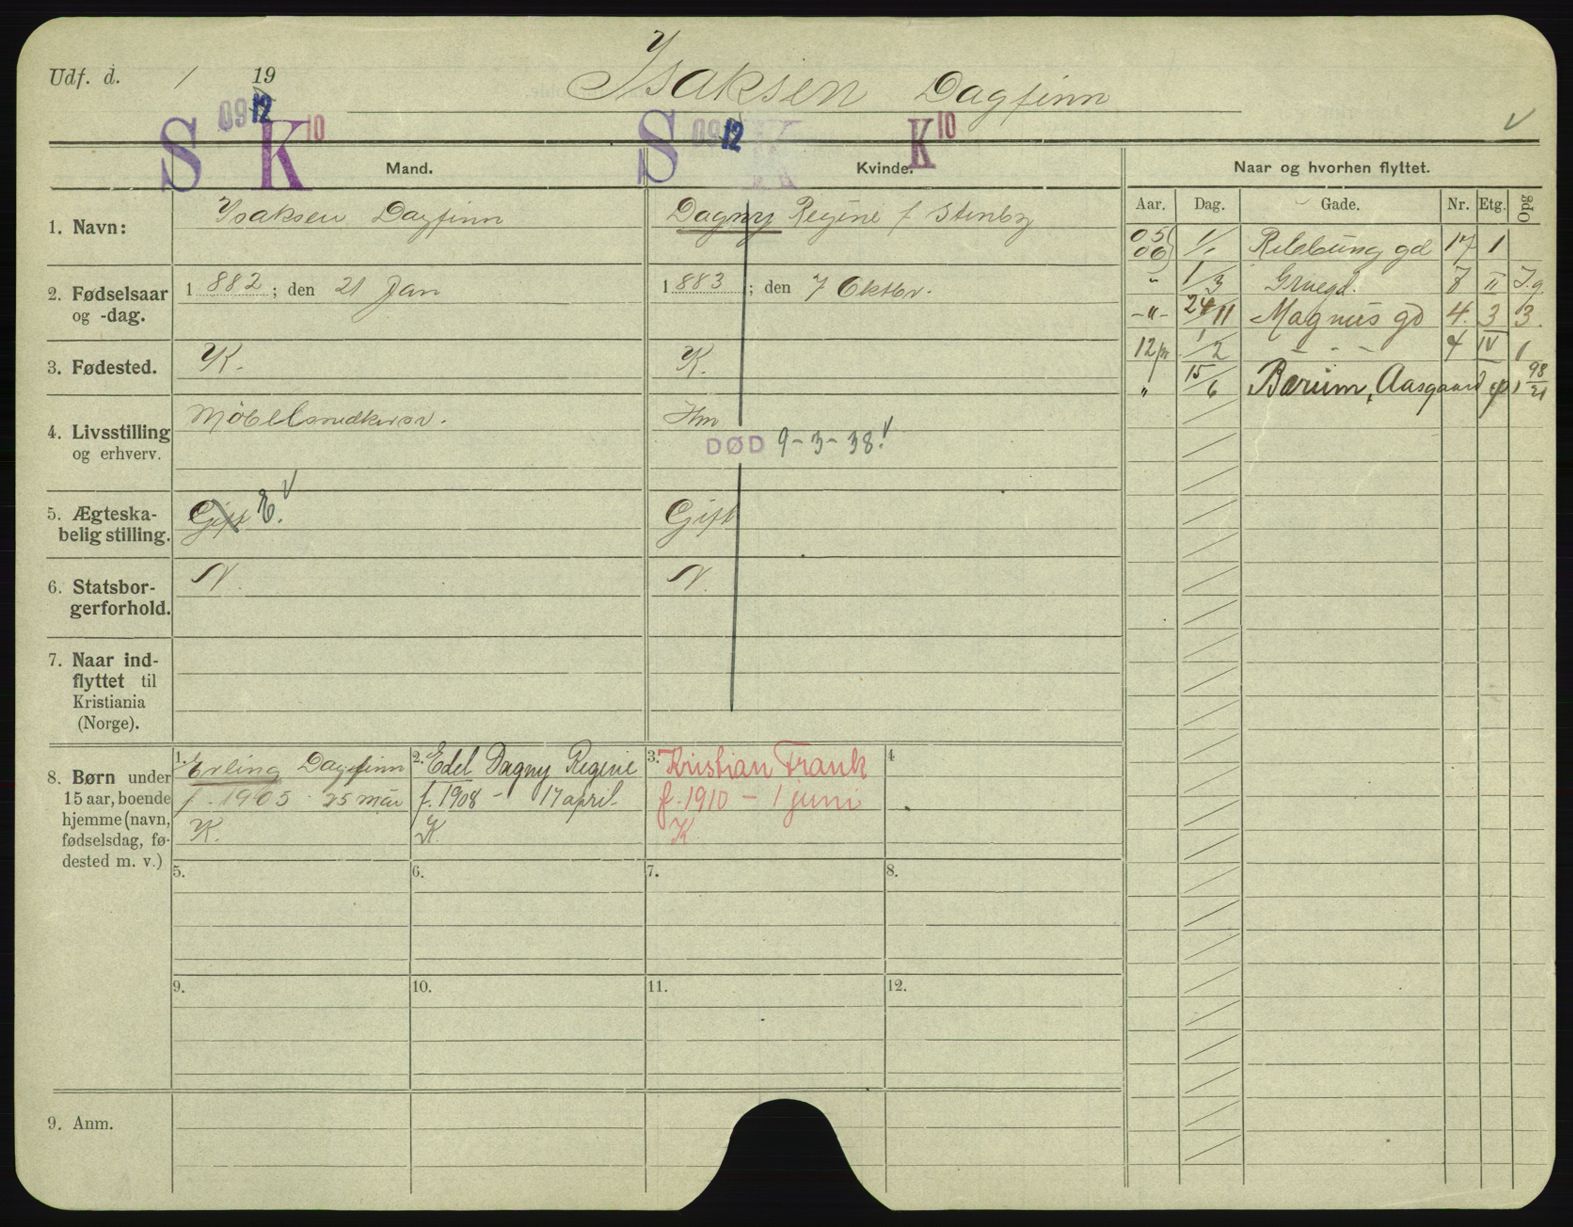 Udf. d. 1 19
Isaksen Dagfinn
S 09 12 K 10 S 09 12 K K 10
Mand. Kvinde. Naar og hvorhen flyttet.
Aar. Dag. Gade. Nr. Etg. Opg
1. Navn: Isaksen Dagfinn Dagny Regine f Stenby
2. Fødselsaar og -dag. 1882; den 21 Jan 1883; den 7 Oktbr.
3. Fødested. K. K.
4. Livsstilling og erhverv. Møbelsnedker Hm
DØD 9-3-38. v
5. Ægteska-
belig stilling. Gift E. v Gift
6. Statsbor-
gerforhold. N. N.
7. Naar ind-
flyttet til
Kristiania
(Norge).
05 06 1/1 gd 17 1
" 1/3 Gruegd. 8 II
-"- 24/11 Magnus gd 4 3 3.
12 1/2 - " - 4 IV 1
" 15/6 Bærum, Aasgaard 98/21
8. Børn under
15 aar, boende
hjemme (navn,
fødselsdag, fø-
dested m. v.)
1. Erling Dagfinn
f. 1905 25 mar
K.
2. Edel Dagny Regine
f. 1908 - 17 april
K.
3. Kristian Frank
f. 1910 - 1 juni
K.
4
5. 6. 7. 8.
9. 10. 11. 12.
9. Anm.